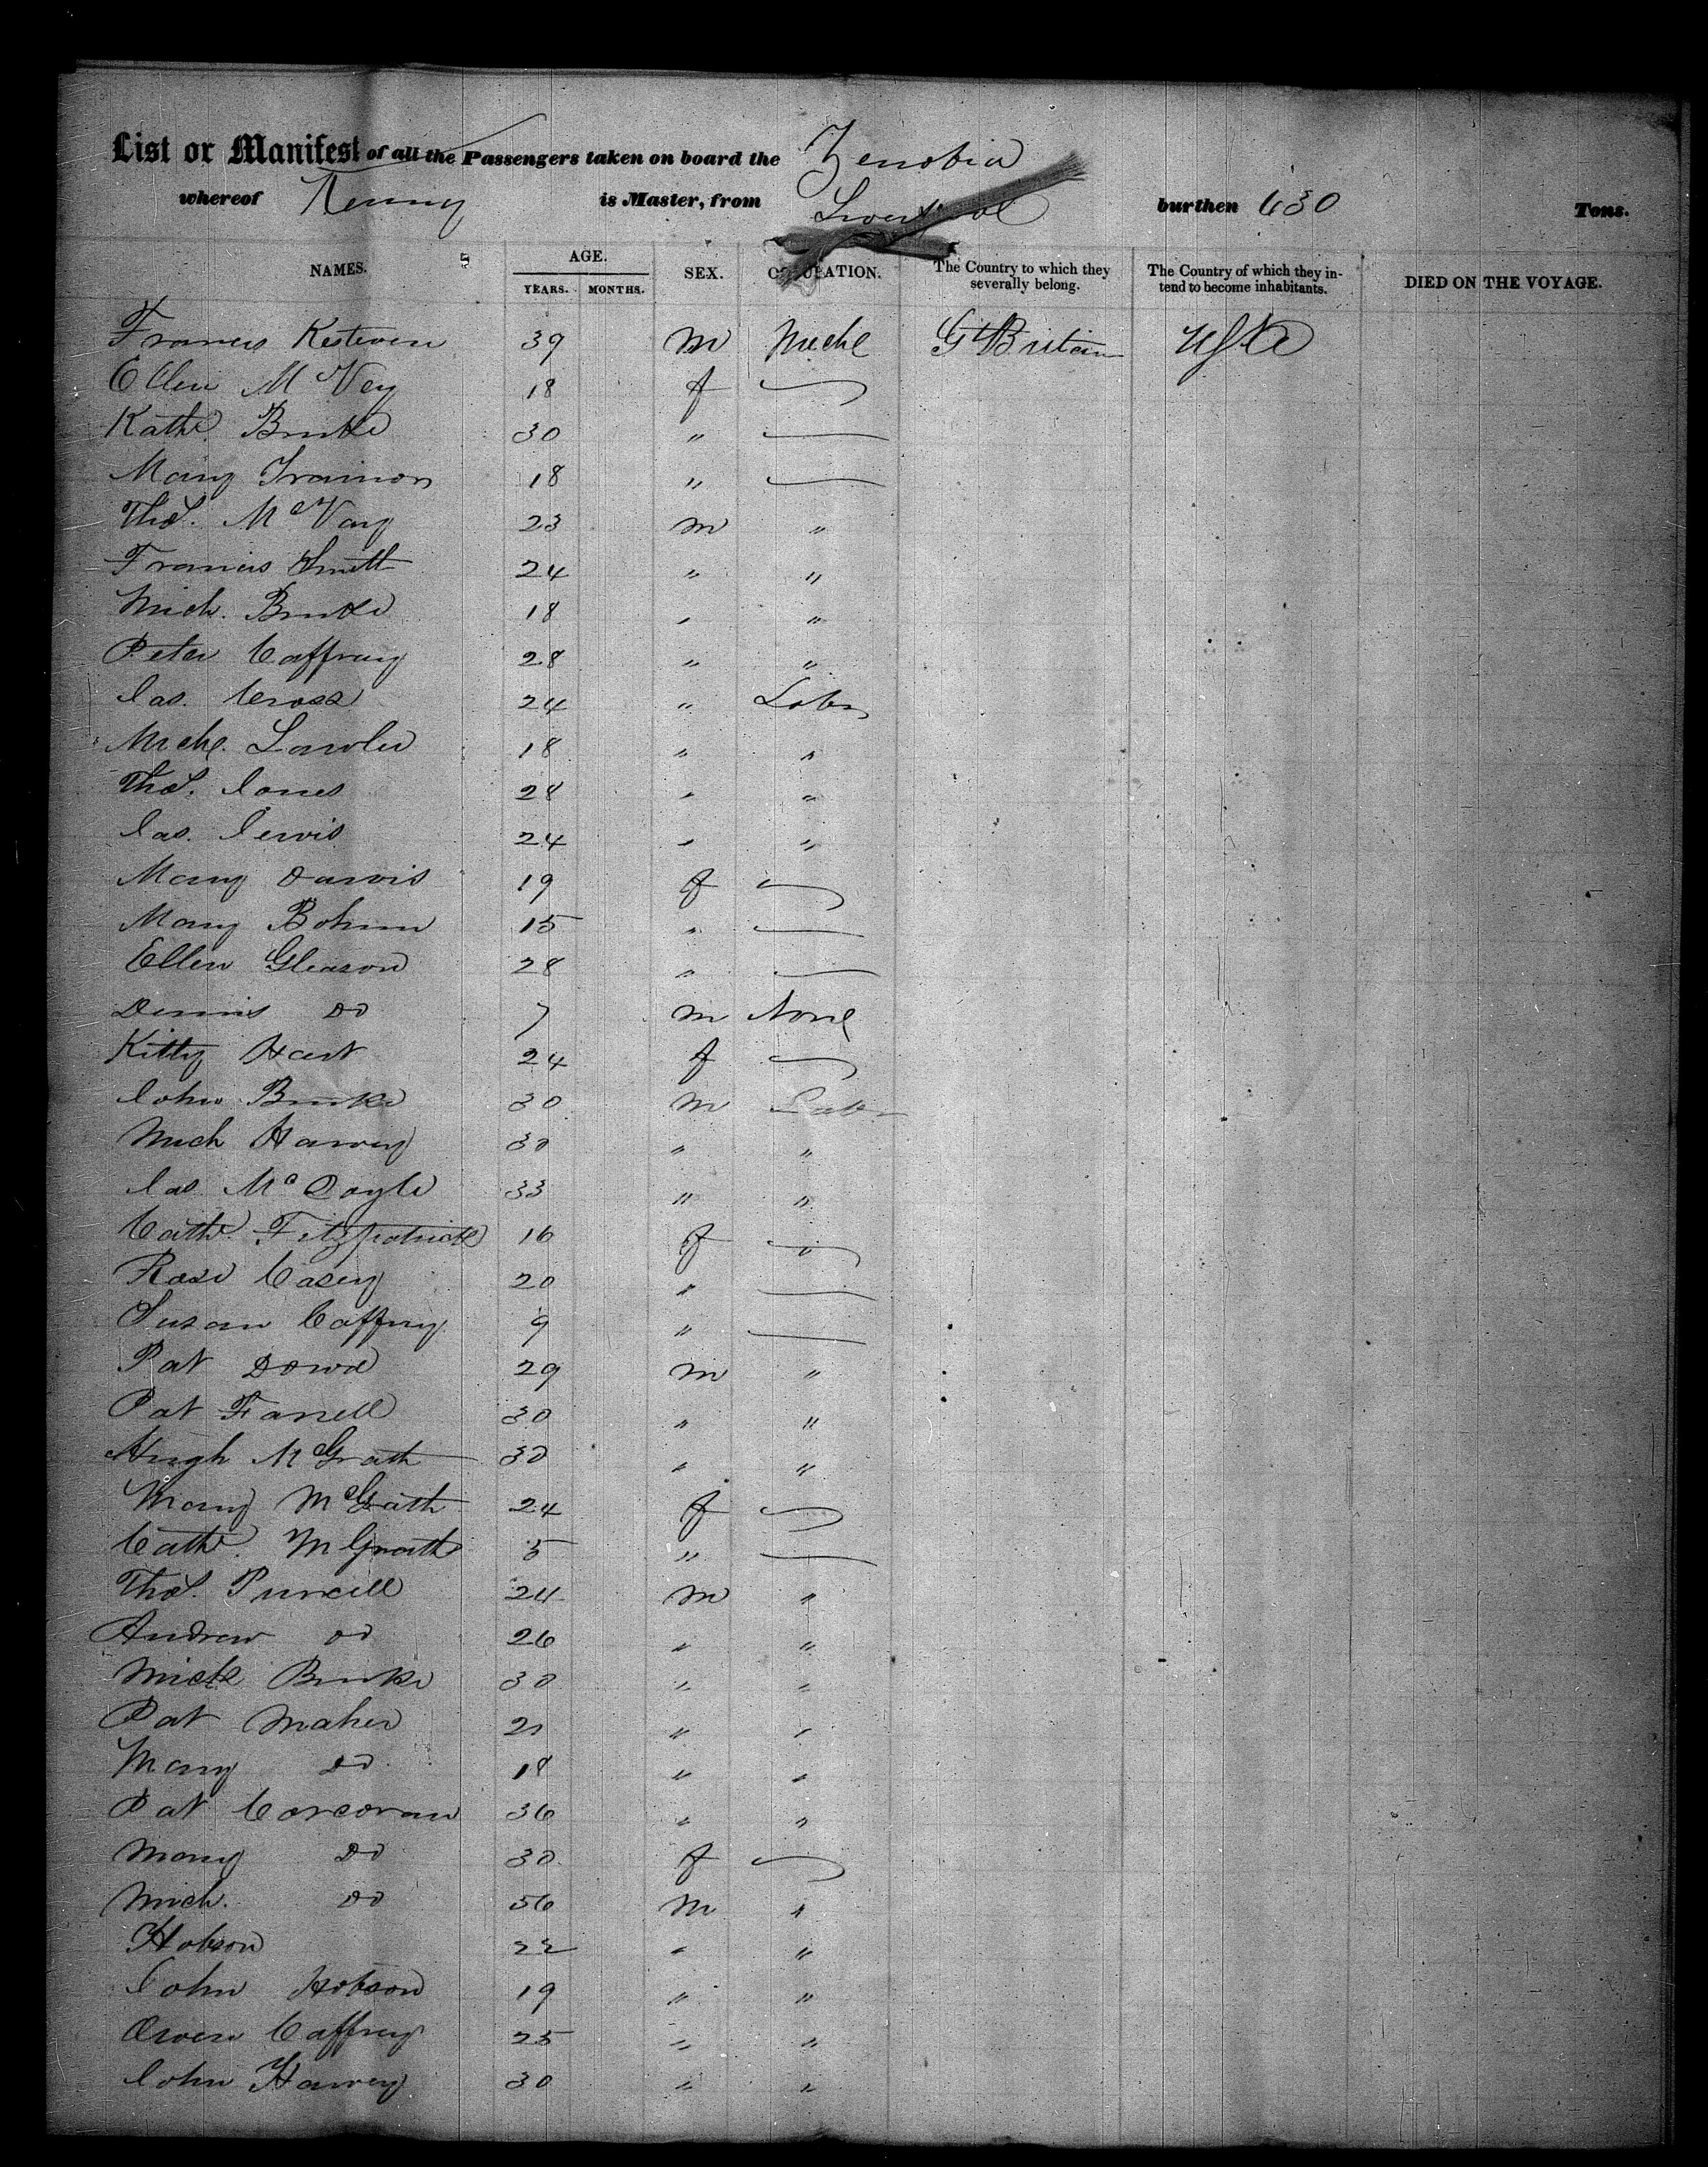 List or Manifest of all the Passengers taken on board the Zenobia
whereof Kenny is Master, from Liverpool burthen 630 Tons.
NAMES. AGE. YEARS. MONTHS. SEX. OCCUPATION. The Country to which they severally belong. The Country of which they intend to become inhabitants. DIED ON THE VOYAGE.
Francis Kesteven 39 M Mechc Gt Britain USA
Ellen McVey 18 f
Kathe. Burke 30 "
Mary Trainor 18 "
Thos. McVay 23 M "
Francis Smith 24 " "
Mich. Burke 18 " "
Peter Caffray 28 " "
Jas. Cross 24 " Labr
Michl. Lawler 18 " "
Thos. Jones 28 " "
Jas. Jervis 24 " "
Mary Darvis 19 f
Mary Bohun 15 "
Ellen Gleason 28 "
Dennis Do 7 M None
Kitty Hart 24 f
John Burke 30 M Labr
Mich Harvey 30 " "
Jas. McDoyle 33 " "
Cathe. Fitzpatrick 16 f "
Rose Casey 20 "
Susan Caffrey 9 "
Pat Dowd 29 M "
Pat Farrell 30 " "
Hugh McGrath 30 " "
Mary McGrath 24 f
Cathe. McGrath 5 "
Thos. Purcell 24 M "
Andrew Do 26 " "
Mich Burke 30 " "
Pat Maher 21 " "
Mary Do 18 " "
Pat Corcoran 36 " "
Mary Do 30 f
Mich. Do 56 M "
Hobson 22 " "
John Hobson 19 " "
Owen Caffrey 25 " "
John Harvey 30 " "